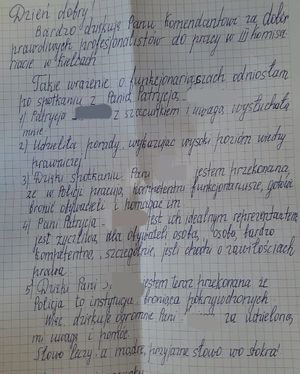 Dzień dobry
Bardzo dziękuję Panu komendantowi za dobór
prawdziwych profesjonalistów do pracy w III komisa
riacie w Kielcach
Takie wrażenie o funkcjonariuszach odniosłam
po spotkaniu z Panią Patrycją
1) Patrycja z szacunkiem i uwagą wysłuchała
mnie
2) Udzieliła porady, wykazując wysoki poziom wiedzy
prawniczej
3) Dzięki spotkaniu Pani jestem przekonana,
że w Policji pracują kompetentni funkcjonariusze, gotowi
bronić obywateli i pomagać im
4) Pani Patrycja jest ich idealnym reprezentantem
jest życzliwą dla obywateli osobą, osobą bardzo
kompetentną, szczególnie, jeśli chodzi o zawiłościach
prawa
5) Dzięki Pani jestem teraz przekonana że
Policja to instytucja broniąca pokrzywdzonych
Więc dziękuję ogromnie Pani za udzieloną
mi uwagę i pomoc.
Słowo leczy, a mądre, przyjazne słowo wo stokroć